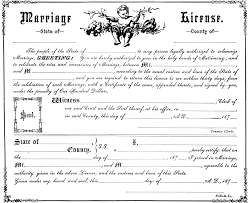 Marriage License.
—State of— —County of—
The people of the State of to any person legally authorized to solemnize
Marriage, GREETING: You are hereby authorized to join in the holy bonds of Matrimony, and
to celebrate the rites and ceremonies of Marriage, between Mr.
and M according to the usual custom and laws of the State of
and you are required to return this license to me within thirty days, from
the celebration of said Marriage, with a Certificate of the same, appended thereto, and signed by you,
under the penalty of One Hundred Dollars.
Witness Clerk of
our said Court and the Seal thereof, at his office, in
said County, this day of A.D. 187
Seal.
County Clerk.
State of
County. S.S. I hereby certify, that on
the day of 187 I joined in Marriage,
Mr. and M agreeable to the
authority, given in the above License, and the customs and laws of this State.
Given under my hand and seal, this day of A.D. 187